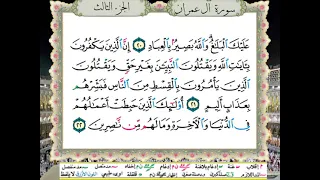 سورة آل عمران الجزء الثالث
عَلَيْكَ ٱلْبَلَٰغُ وَٱللَّهُ بَصِيرٌۢ بِٱلْعِبَادِ ٢٠ إِنَّ ٱلَّذِينَ يَكْفُرُونَ
بِـَٔايَٰتِ ٱللَّهِ وَيَقْتُلُونَ ٱلنَّبِيِّـۧنَ بِغَيْرِ حَقٍّ وَيَقْتُلُونَ
ٱلَّذِينَ يَأْمُرُونَ بِٱلْقِسْطِ مِنَ ٱلنَّاسِ فَبَشِّرْهُم
بِعَذَابٍ أَلِيمٍ ٢١ أُو۟لَٰٓئِكَ ٱلَّذِينَ حَبِطَتْ أَعْمَٰلُهُمْ
فِى ٱلدُّنْيَا وَٱلْءَاخِرَةِ وَمَا لَهُم مِّن نَّٰصِرِينَ ٢٢